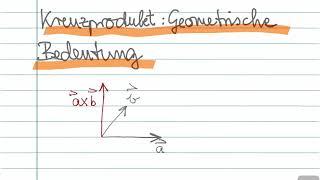 Kreuzprodukt: Geometrische
Bedeutung
a⃗xb⃗
b⃗
a⃗